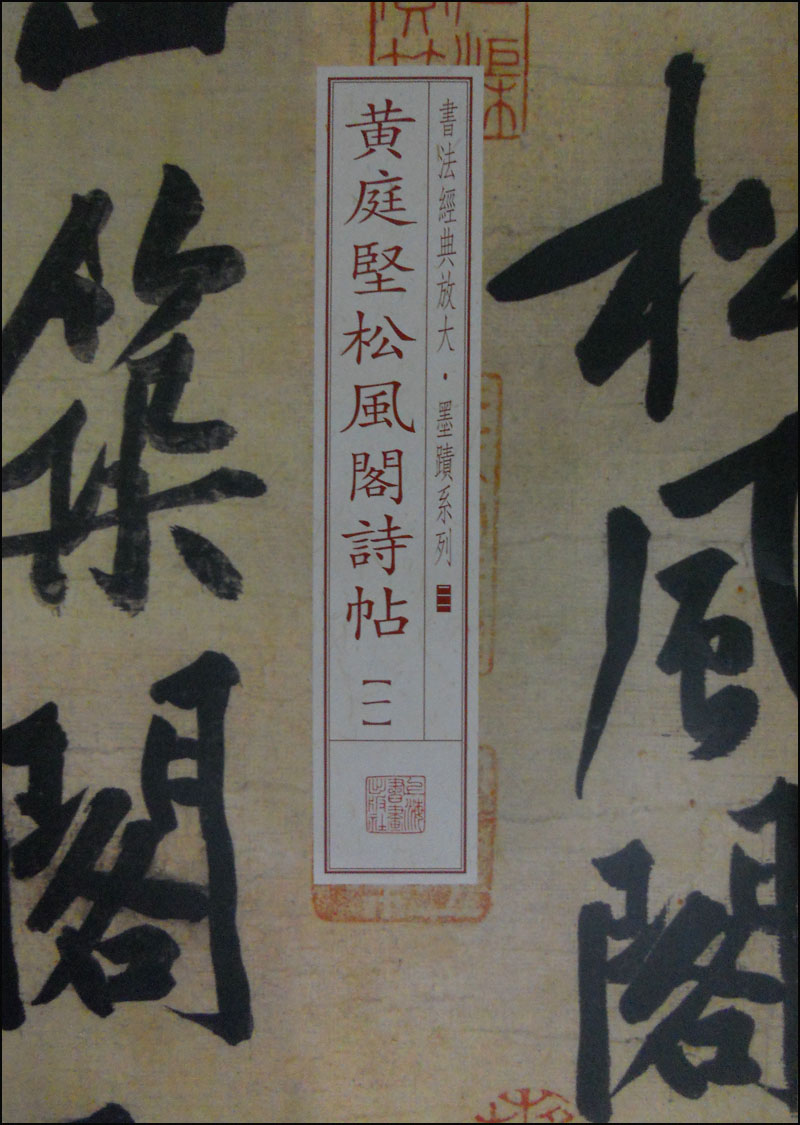 松風閣
書法經典放大·墨蹟系列
黄庭堅松風閣詩帖【一】
上海書畫出版社
山築閣